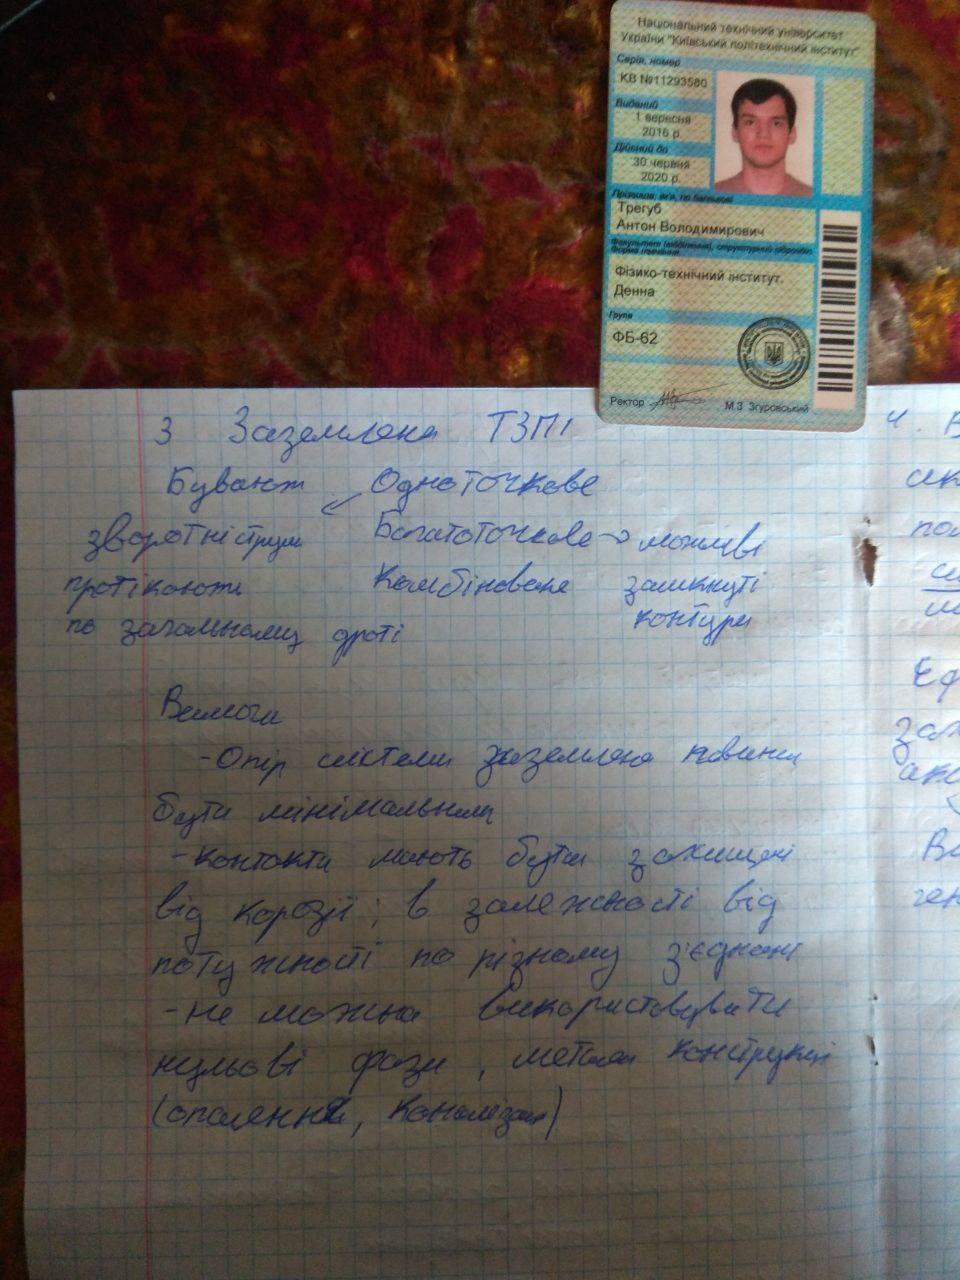 Національний технічний університет
України "Київський політехнічний інститут"
Серія, номер
КВ №11293580
Виданий
1 вересня
2016 р.
Дійсний до
30 червня
2020 р.
Прізвище, ім'я, по батькові
Трегуб
Антон Володимирович
Факультет (відділення), структурний підрозділ.
Форма навчання
Фізико-технічний інститут.
Денна
Група
ФБ-62
Ректор М.З. Згуровський
3 Заземлення ТЗПІ
Бувають Одноточкове
зворотні струми Багатоточкове → можливі
протікають Комбіноване замкнуті
по загальному дроті контури
Вимоги
- Опір системи заземлення повинен
бути мінімальним
- контакти мають бути захищені
від корозії; в залежності від
потужності по різному з'єднані
- не можна використовувати
нульові фази, метал конструкції
(опалення, каналізація)
4. В
пол
Еф
зах